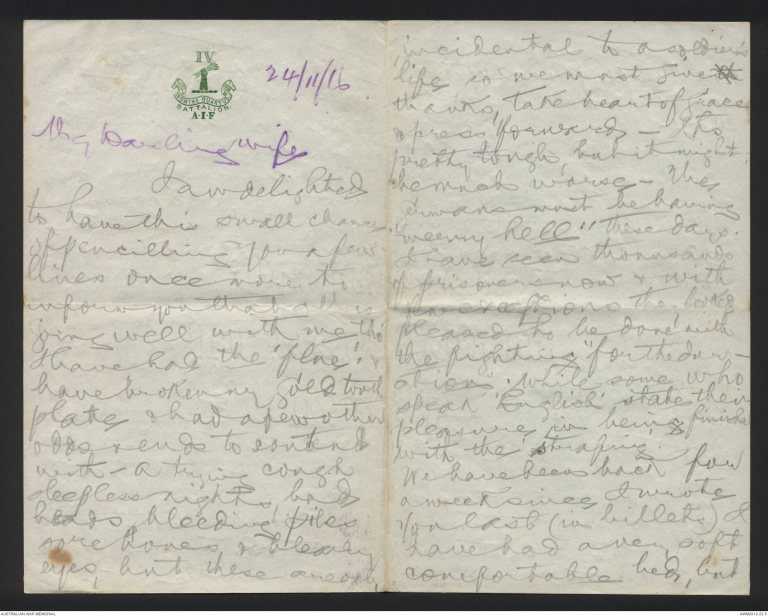 IV
BATTALION
A·I·F
24/11/16
My Darling wife
I am delighted
to have this small chance
of pencilling you a few
lines once more to
inform you that all is
going well with me tho'
I have had the 'flue' &
have broken my gold tooth
plate & had a few other
odds & ends to contend
with - A trying cough
sleepless nights, bad
heads bleeding piles
sore bones, & bleary
eyes, but these are only
incidental to a soldiers
life so we must give
thanks, take heart of grace
& press forward - Its
pretty tough, but it might
be much worse - The
Germans must be having
"merry hell" these days.
I have seen thousands
of prisoners now & with
few exceptions they looked
pleased to be done with
the fighting "for the dur-
ation". While some who
speak 'English' state their
pleasure in being finished
with the
We have been back for
a week since I wrote
you last (in billets) I
have had a very soft
comfortable bed, but
AUSTRALIAN WAR MEMORIAL